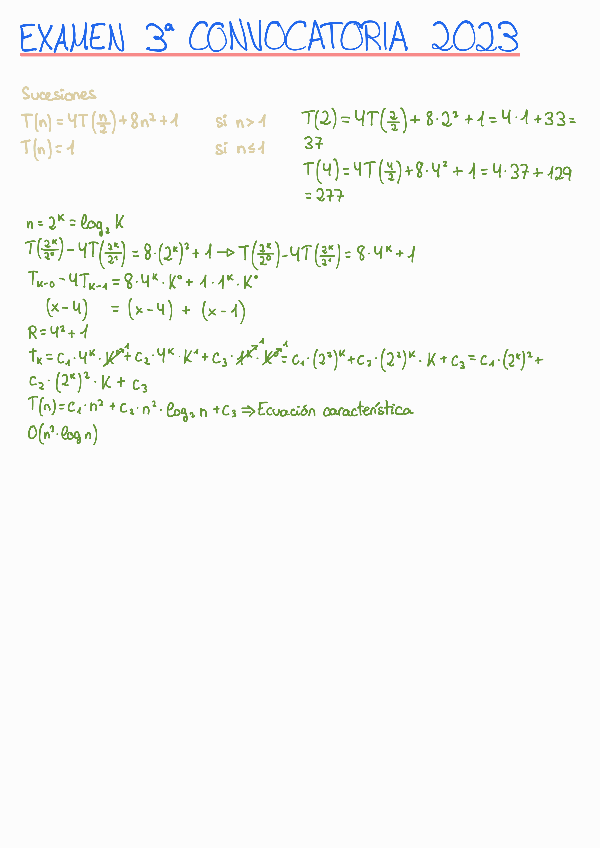 EXAMEN 3ª CONVOCATORIA 2023
Sucesiones
T(n) = 4T(n/2) + 8n² + 1 si n > 1
T(n) = 1 si n ≤ 1
T(2) = 4T(2/2) + 8·2² + 1 = 4·1 + 33 =
37
T(4) = 4T(4/2) + 8·4² + 1 = 4·37 + 129
= 277
n = 2ᴷ = log₂ K
T(2ᴷ/2⁰) - 4T(2ᴷ/2¹) = 8·(2ᴷ)² + 1 → T(2ᴷ/2⁰) - 4T(2ᴷ/2¹) = 8·4ᴷ + 1
Tₖ₋₀ - 4Tₖ₋₁ = 8·4ᴷ·K⁰ + 1·1ᴷ·K⁰
(x-4) = (x-4) + (x-1)
R = 4² + 1
tₖ = c₁·4ᴷ·K⁰↗¹ + c₂·4ᴷ·K¹ + c₃·1ᴷ↗¹·K⁰↗¹ = c₁·(2²)ᴷ + c₂·(2²)ᴷ·K + c₃ = c₁·(2ᴷ)² +
c₂·(2ᴷ)²·K + c₃
T(n) = c₁·n² + c₂·n²·log₂ n + c₃ ⇒ Ecuación característica
O(n²·log n)